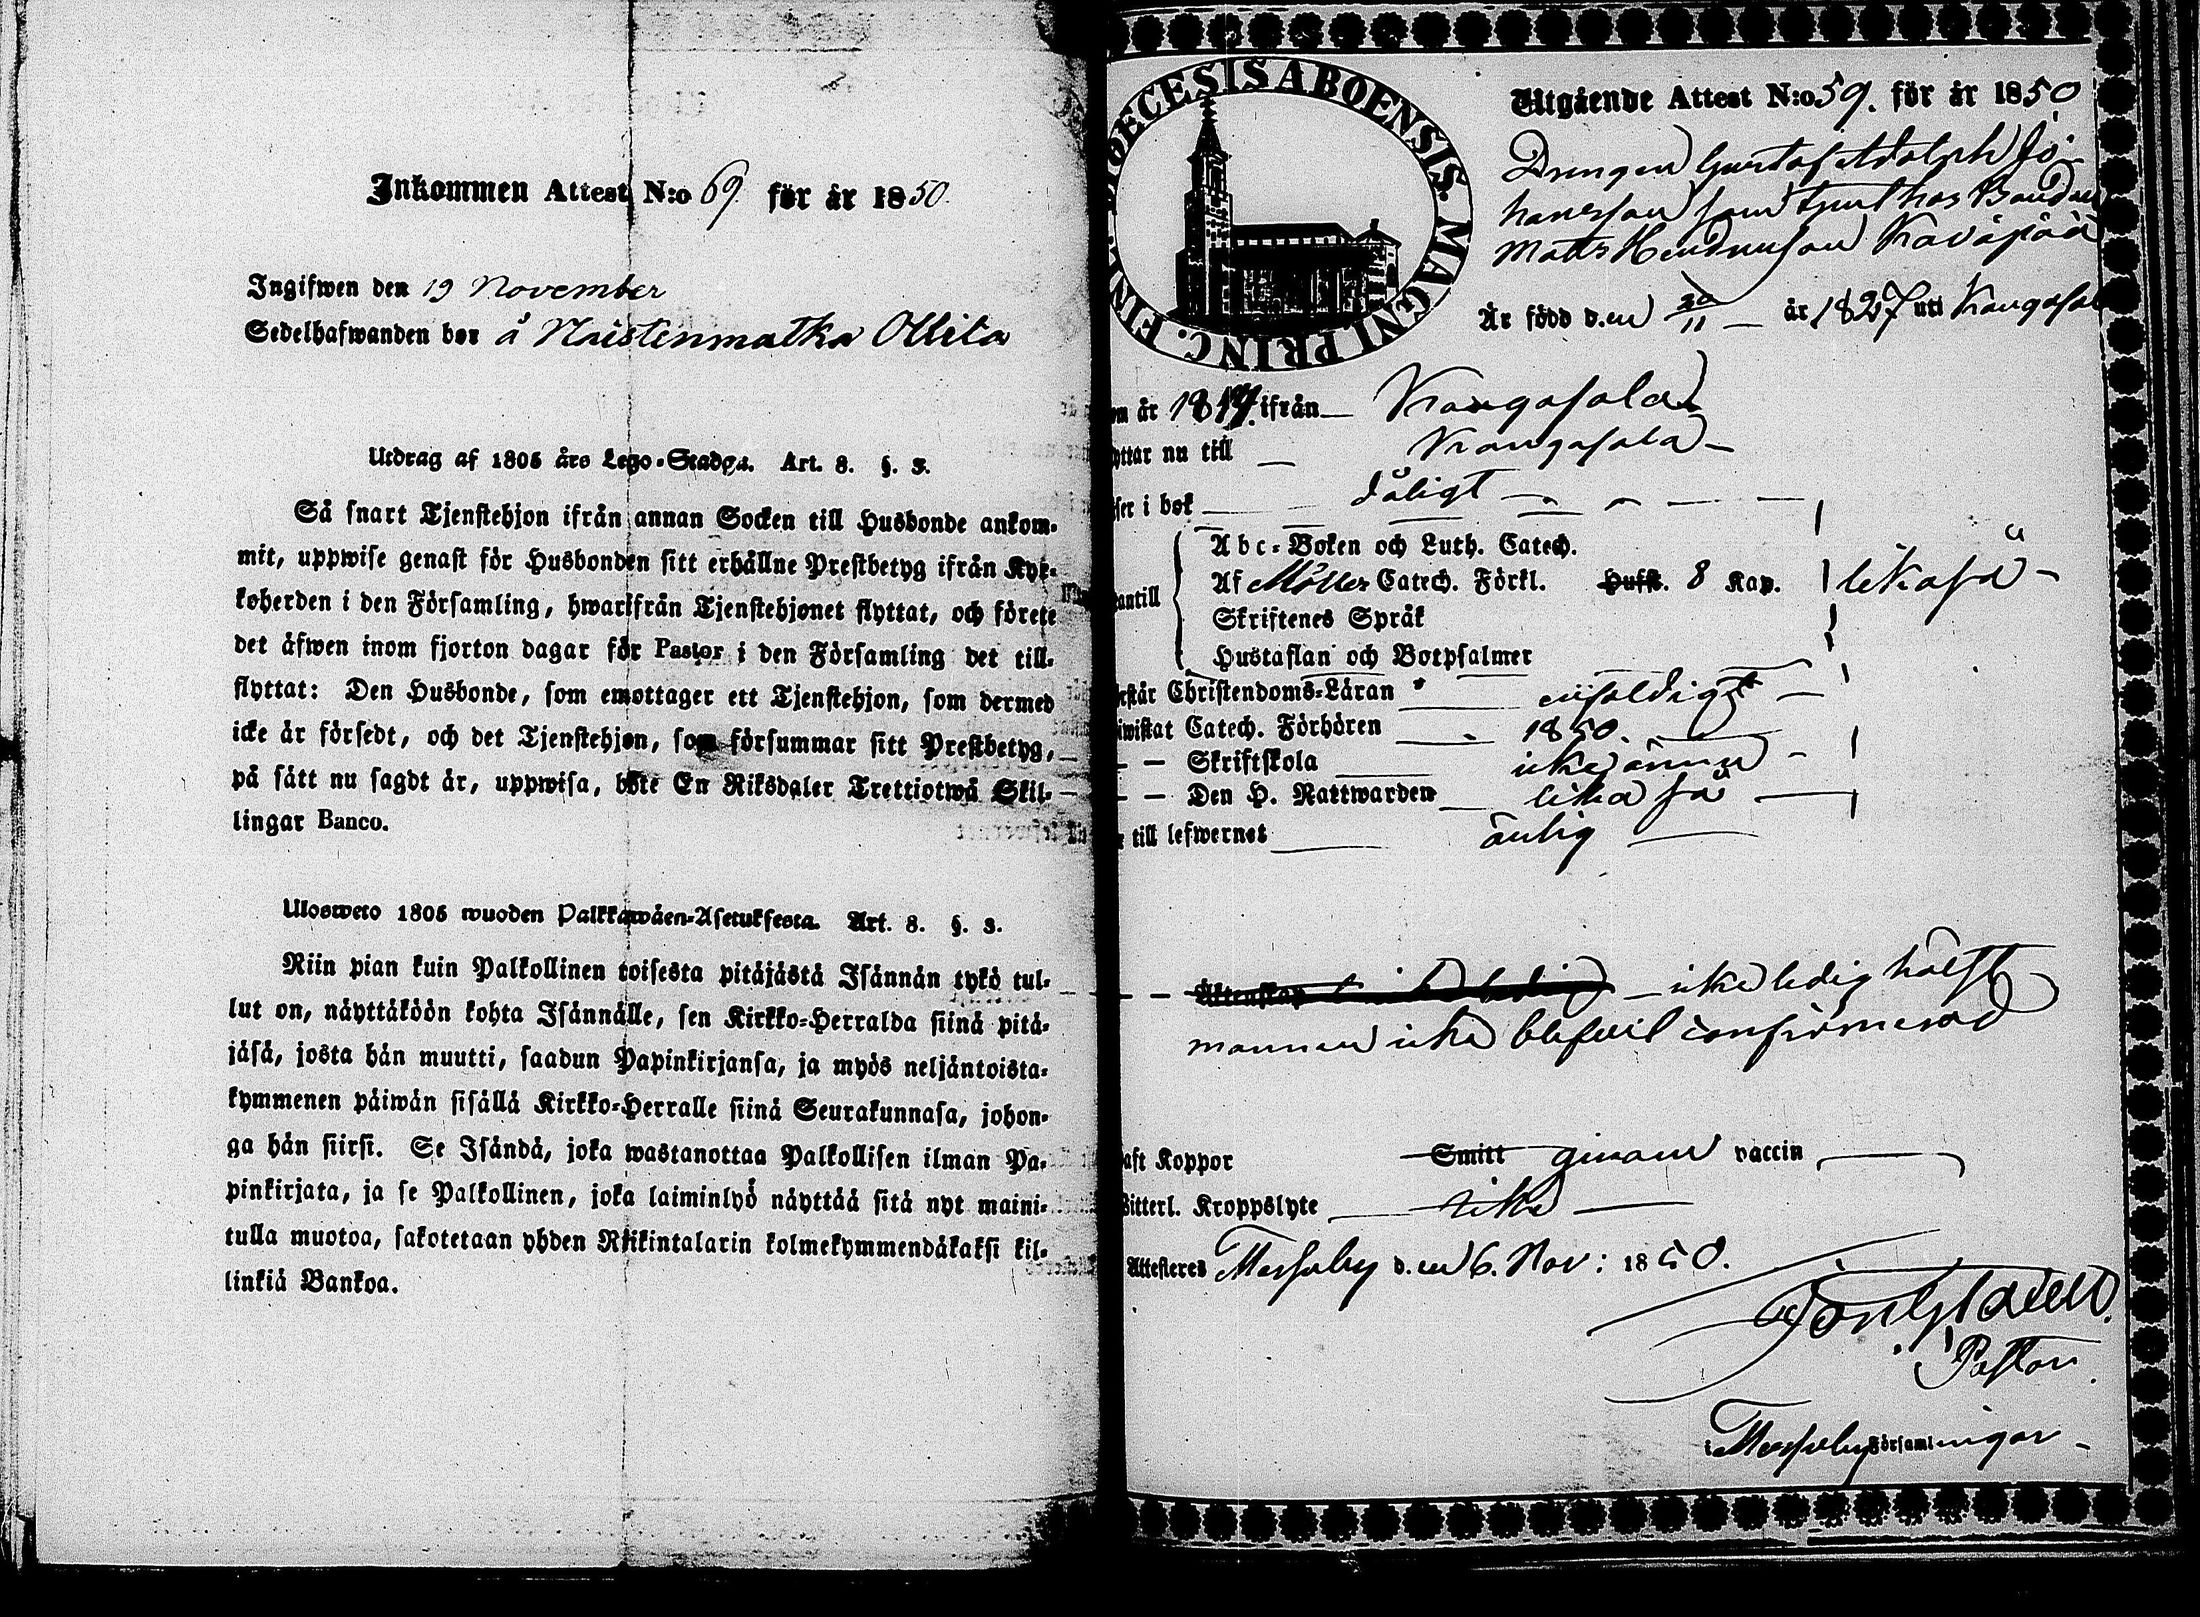 Inkommen Attest N:o 69. för år 1850.
Ingifwen den 19 November
Sedelhafwanden bor å Naistenmatka Ollila
Utdrag af 1805 års Lego-Stadga. Art. 8. §. 3.
Så snart Tjenstehjon ifrån annan Socken till Husbonde ankom-
mit, uppwise genast för Husbonden sitt erhållne Prestbetyg ifrån Kyr-
koherden i den Församling, hwarifrån Tjenstehjonet flyttat, och förete
det äfwen inom fjorton dagar för Pastor i den Församling det till-
flyttat: Den Husbonde, som emottager ett Tjenstehjon, som dermed
icke är försedt, och det Tjenstehjon, som försummar sitt Prestbetyg,
på sätt nu sagdt är, uppwisa, böte En Riksdaler Trettiotwå Skil-
lingar Banco.
Ulosweto 1805 wuoden Palkkawäen-Asetuksesta. Art. 8. §. 3.
Niin pian kuin Palkollinen toisesta pitäjästä Isännän tykö tul-
lut on, näyttäköön kohta Isännälle, sen Kirkko-Herralda siinä pitä-
jäsä, josta hän muutti, saadun Papinkirjansa, ja myös neljäntoista-
kymmenen päiwän sisällä Kirkko-Herralle siinä Seurakunnasa, johon-
ga hän siirsi. Se Isändä, joka wastanottaa Palkollisen ilman Pa-
pinkirjata, ja se Palkollinen, joka laiminlyö näyttää sitä nyt maini-
tulla muotoa, sakotetaan yhden Riikintalarin kolmekymmendäkaksi kil-
linkiä Bankoa.
DIOECESIS ABOENSIS. MAGNI PRINC. FINL.
Utgående Attest N:o 59. för år 1850
Drengen Gustaf Adolph Jo-
hansson som tjent hos Bonden
Matts Hendricsson
Är född d.en 30/11 år 1827 uti Kangasala
om år 18 ifrån Kangasala
yttar nu till Kangasala
ser i bok dåligt
antill
Abc-Boken och Luth. Catech.
Af Möller Catech. Förkl. Husft. 8 Kap. likaså
Skriftenes Språk
Hustaflan och Botpsalmer
rstår Christendoms-Läran enfaldigt
iwistat Catech. Förhören 1850.
Skriftskola icke ännu
Den H. Nattwarden lika så
till lefwernet ärlig
Äktenskap ledig icke ledig hälst
mannen icke blifvit confirmerad
aft Koppor Smitt genom vaccin
itterl. Kroppslyte icke
Attesteras Messuby d.en 6. Nov: 1850.
Pastor.
i Messuby Församlingar